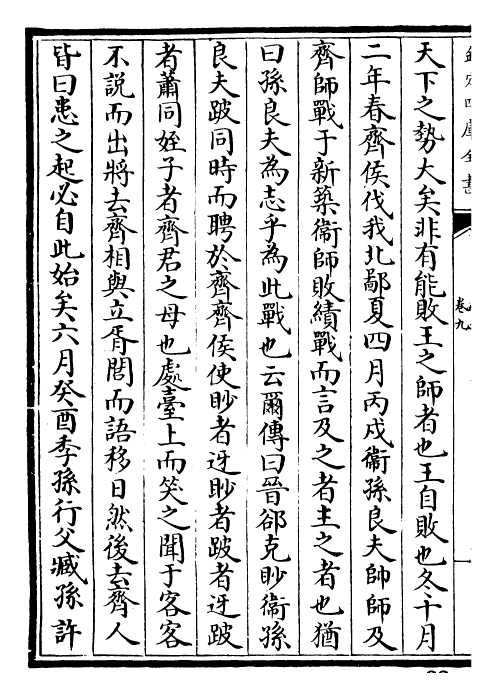 欽定四庫全書
卷九
一
天下之勢大矣非有能敗王之師者也王自敗也冬十月
二年春齊侯伐我北鄙夏四月丙戌衞孫良夫帥師及
齊師戰于新築衞師敗績戰而言及之者主之者也猶
曰孫良夫為志乎為此戰也云爾傳曰晉郤克眇衞孫
良夫跛同時而聘於齊齊侯使眇者迓眇者跛者迓跛
者蕭同姪子者齊君之母也處臺上而笑之聞于客客
不説而出將去齊相與立胥閭而語移日然後去齊人
皆曰患之起必自此始矣六月癸酉季孫行父臧孫許